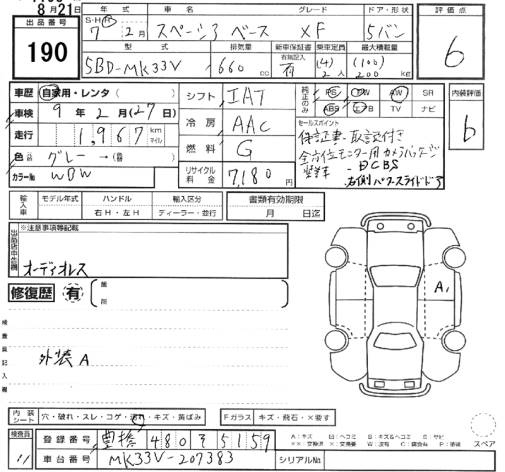 8月21日
出品番号
190
年式 車名 グレード ドア・形状
S・H・R
7年 2月 スペーシアベース XF 5バン
型式 排気量 新車保証書 乗車定員 最大積載量
有無記入
5BD-MK33V 660cc 有 (4) 2人 (100) 200kg
評価点
6
車歴 自家用・レンタ( )
車検 9年2月(27日)
走行 1,967 km マイル
色 グレー →(替)
カラーNo WBW
シフト IAT
冷房 AAC
燃料 G
リサイクル料金 7,180円
純正のみ
PS PW AW SR
ABS エアB TV ナビ
内装評価
6
セールスポイント
保証書・取説付き
全方位モニター用カメラパッケージ
DCBS
右側パワースライドドア
輸入車 モデル年式 ハンドル 輸入区分
年 右H・左H ディーラー・並行
書類有効期限
月 日迄
※注意事項等記載
オーディオレス
修復歴 有
箇所
検査員記入欄
外装A
A1
内装シート 穴・破れ・スレ・コゲ・汚れ・キズ・黄ばみ
Fガラス キズ・飛石・×要す
スペア
検査員
登録番号 豊橋 480 う 5159
車台番号 MK33V-207383
シリアルNo.